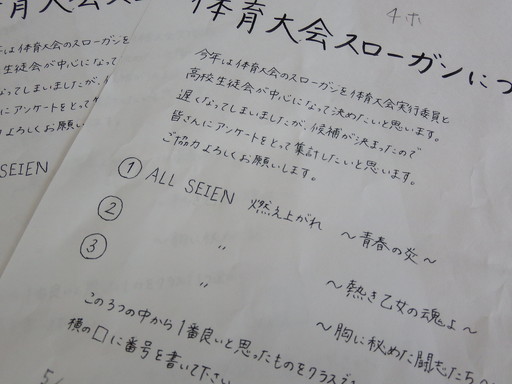 4ホ
体育大会スローガンにつ
今年は体育大会のスローガンを体育大会実行委員と
高校生徒会が中心になって決めたいと思います。
遅くなってしまいましたが、候補が決まったので
皆さんにアンケートをとって集計したいと思います。
ご協力よろしくお願いします。
① ALL SEIEN 燃え上がれ ～青春の炎～
② 〃 ～熱き乙女の魂よ～
③ 〃 ～胸に秘めた闘志たち～
この3つの中から1番良いと思ったものをクラスで
横の□に番号を書いて下さい
5/
育大会スロー
年は体育大会のスローガンを
生徒会が中心になって
なってしまいましたが、
にアンケートをとって
力よろしくお願い
SEIEN